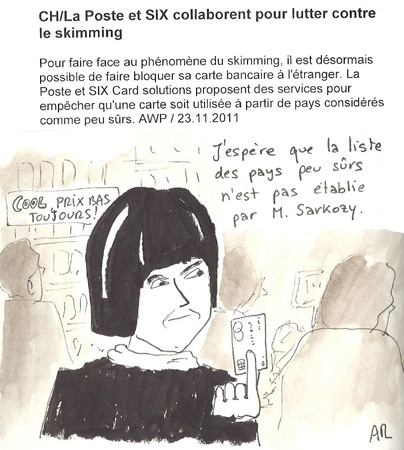 CH/La Poste et SIX collaborent pour lutter contre
le skimming
Pour faire face au phénomène du skimming, il est désormais
possible de faire bloquer sa carte bancaire à l'étranger. La
Poste et SIX Card solutions proposent des services pour
empêcher qu'une carte soit utilisée à partir de pays considérés
comme peu sûrs. AWP / 23.11.2011
J'espère que la liste
des pays peu sûrs
n'est pas établie
par M. Sarkozy.
COOB, PRIX BAS
TOUJOURS!
AR